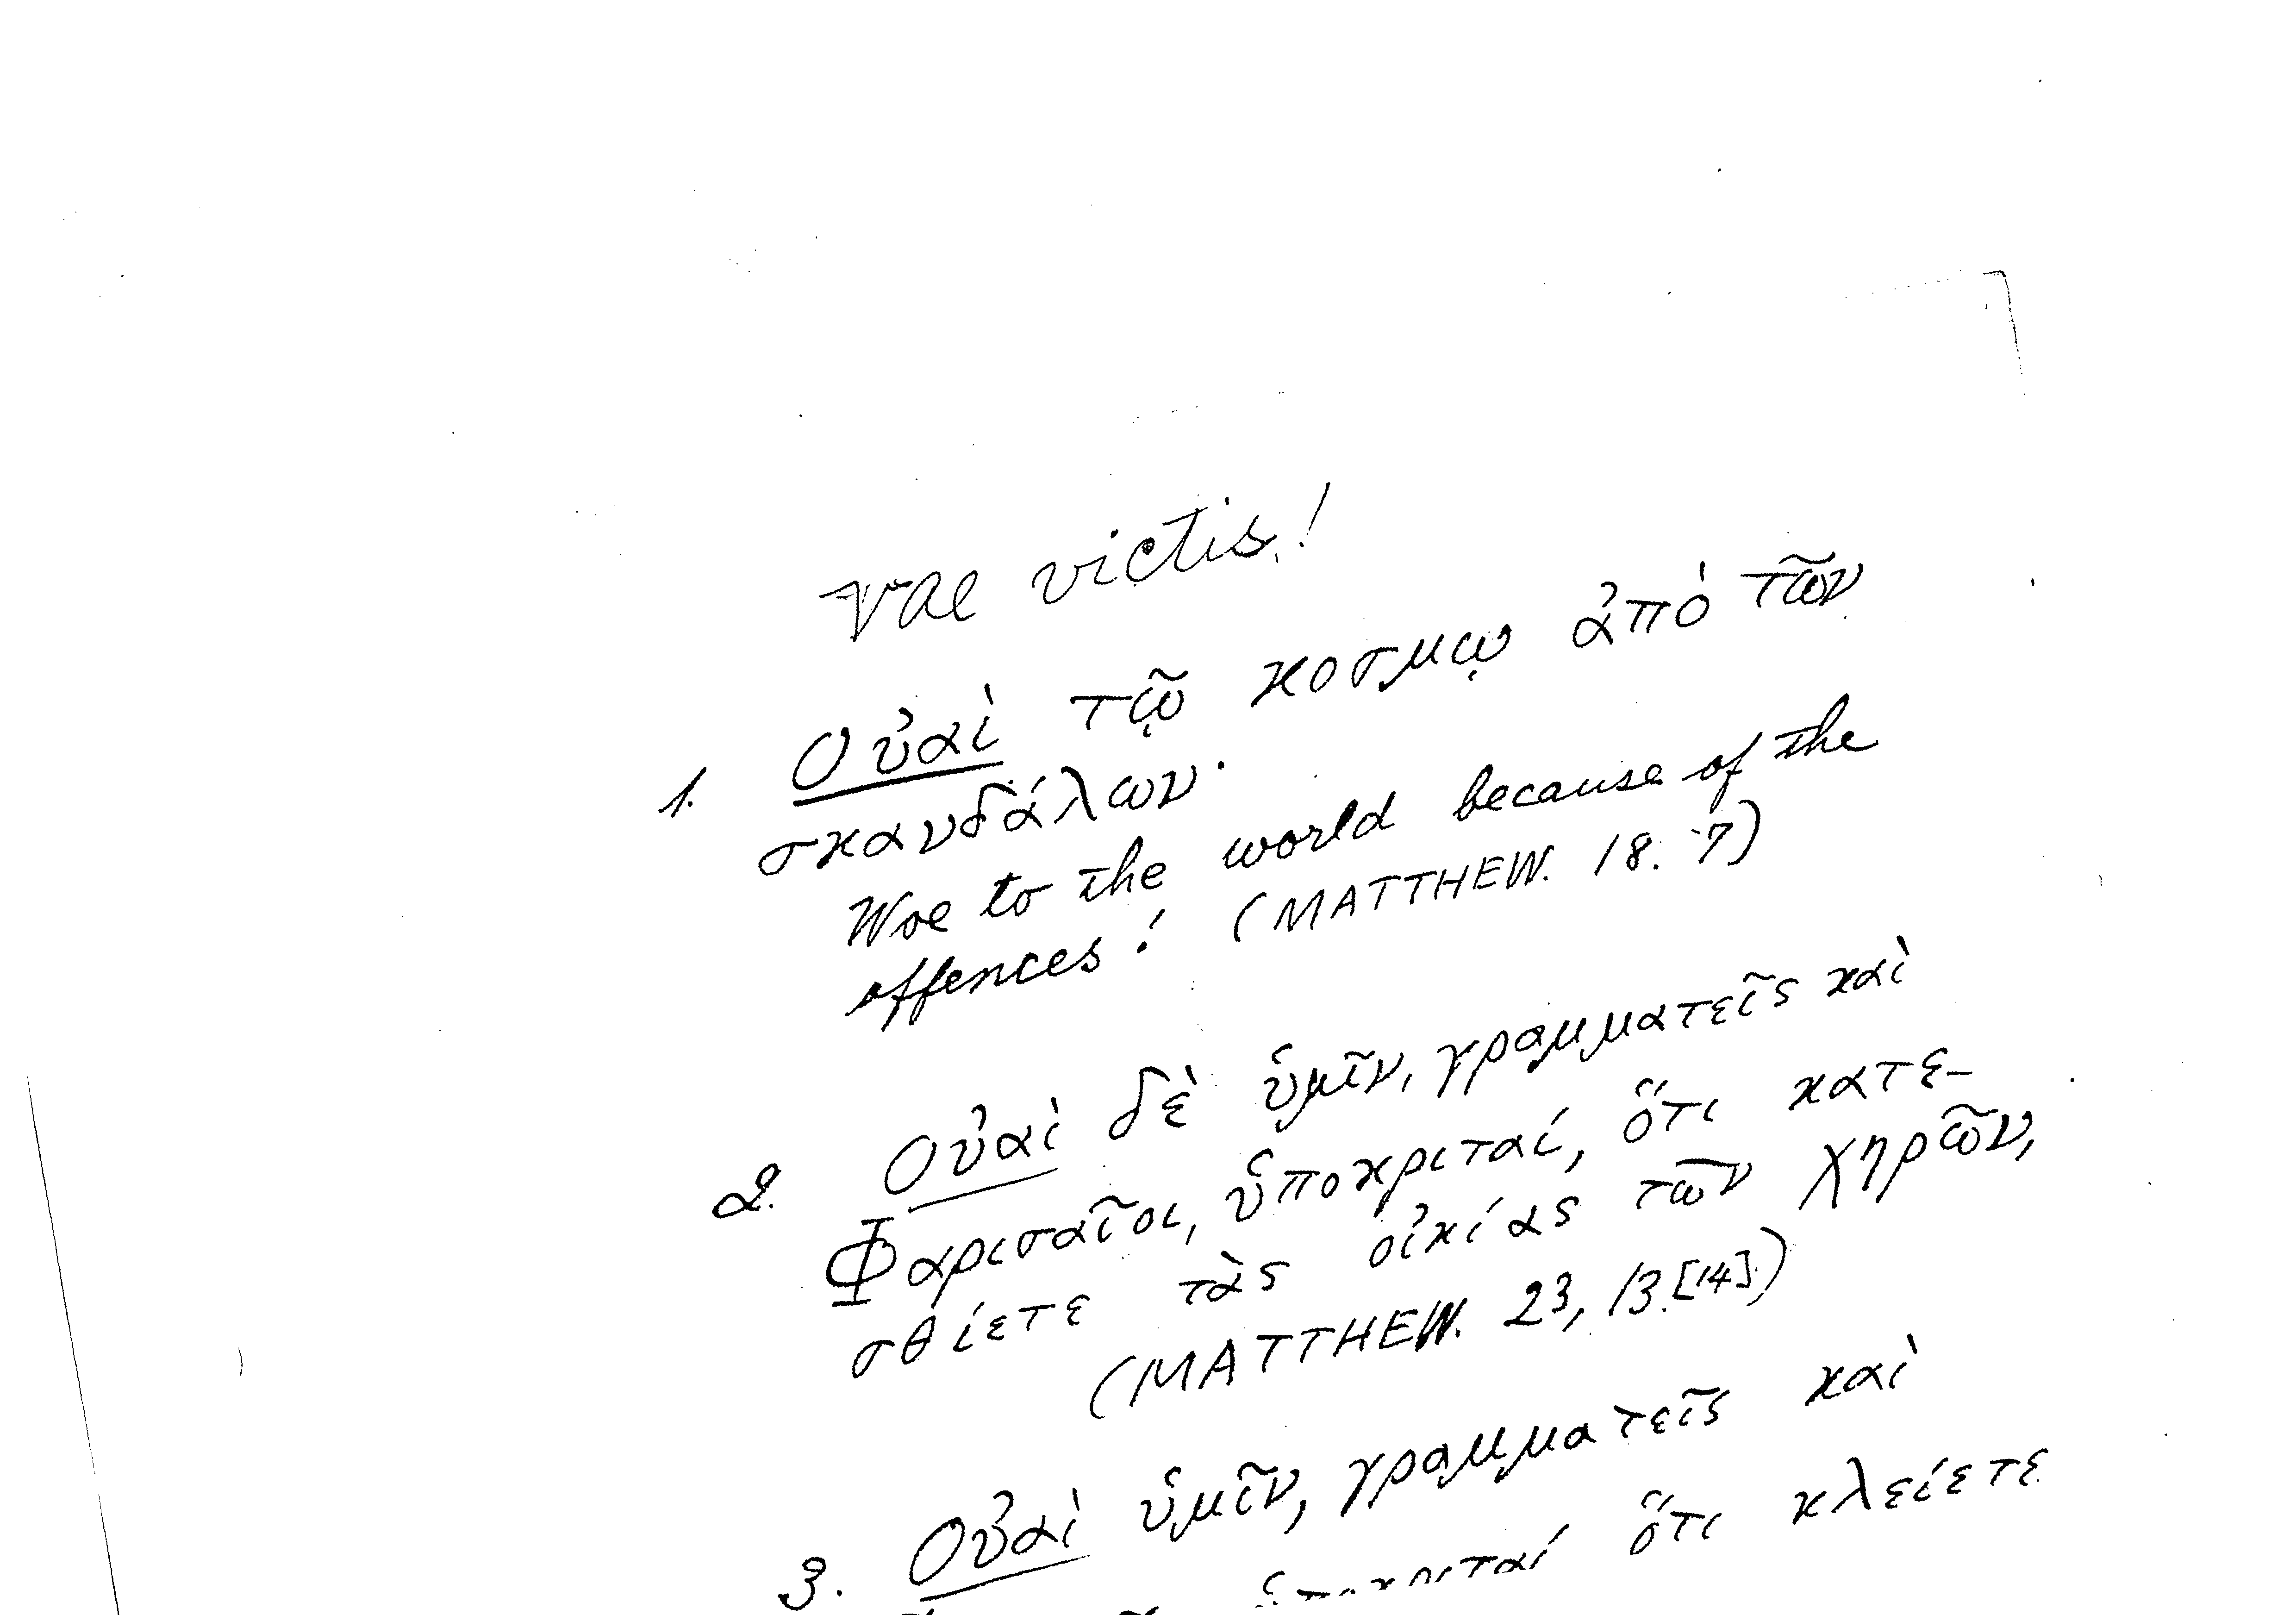 Vae victis!
1. Οὐαὶ τῷ κοσμῳ ἀπὸ τῶν
σκανδάλων·
Woe to the world because of the
offences! (MATTHEW. 18. 7)
2. Οὐαὶ δὲ ὑμῖν, γραμματεῖς καὶ
Φαρισαῖοι, ὑποκριταί, ὅτι κατε-
σθίετε τὰς οἰκίας τῶν χηρῶν,
(MATTHEW. 23, 13.[14])
3. Οὐαὶ ὑμῖν, γραμματεῖς καὶ
ὑποκριταί ὅτι κλείετε